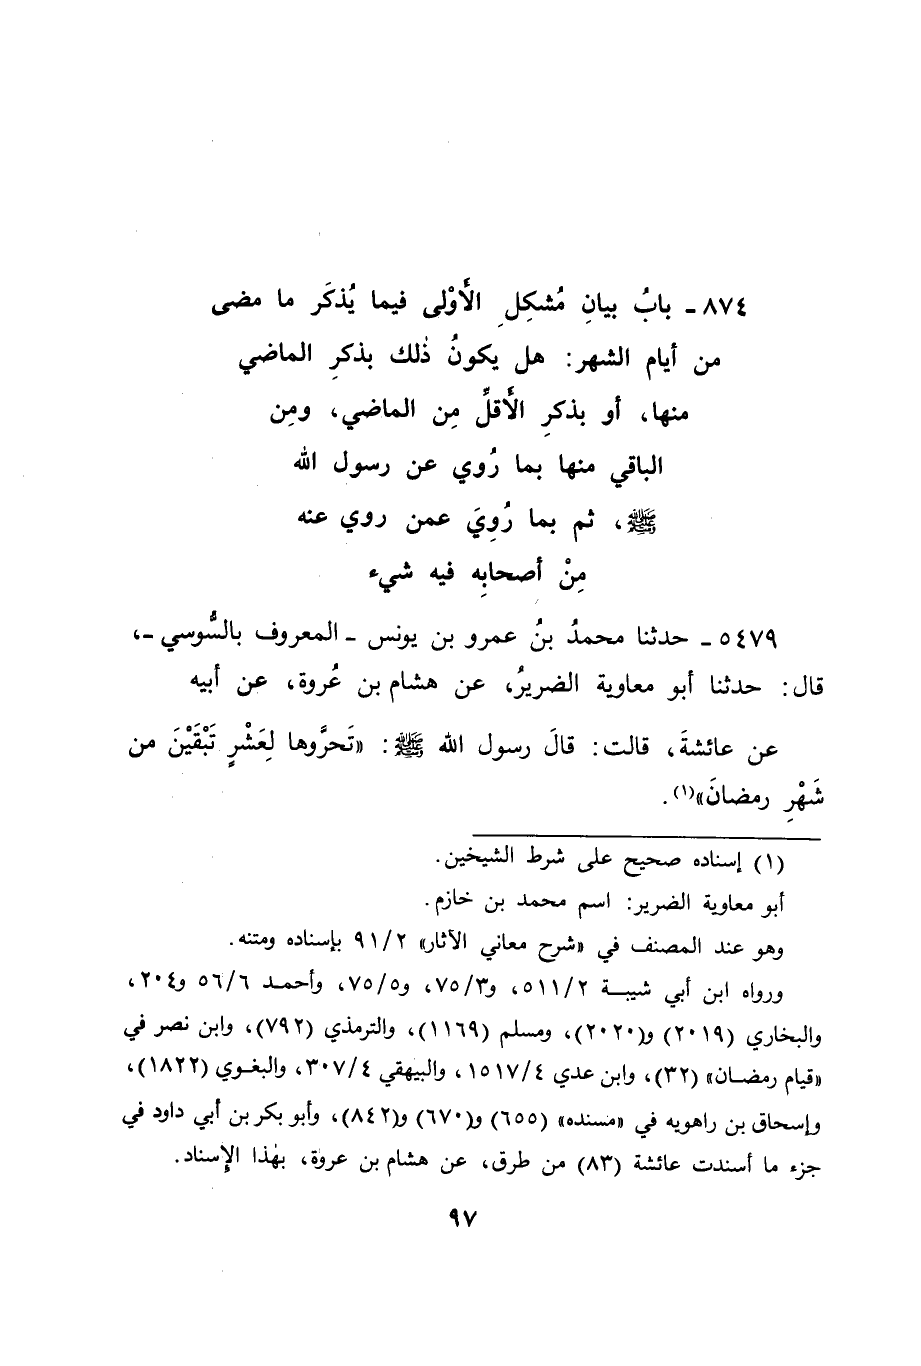 ٨٧٤ ـ بابُ بيانِ مُشكِلِ الأَوْلى فيما يُذكَر ما مضى
من أيام الشهر: هل يكونُ ذٰلك بذكرِ الماضي
منها، أو بذكرِ الأَقلِّ مِن الماضي، ومِن
الباقي منها بما رُوي عن رسول الله
ﷺ، ثم بما رُوِيَ عمن روي عنه
مِنْ أصحابِه فيه شيء
٥٤٧٩ ـ حدثنا محمدُ بنُ عمرو بن يونس ـ المعروف بالسُّوسي ـ،
قال: حدثنا أبو معاوية الضريرُ، عن هشام بن عُروة، عن أبيه
عن عائشةَ، قالت: قالَ رسول الله ﷺ: «تَحرَّوها لِعَشْرٍ تَبْقَيْنَ من
شَهْرِ رمضانَ»(١).
(١) إسناده صحيح على شرط الشيخين.
أبو معاوية الضرير: اسم محمد بن خازم.
وهو عند المصنف في «شرح معاني الآثار» ٩١/٢ بإسناده ومتنه.
ورواه ابن أبي شيبة ٥١١/٢، و٧٥/٣، و٧٥/٥، وأحمد ٥٦/٦ و٢٠٤،
والبخاري (٢٠١٩) و(٢٠٢٠)، ومسلم (١١٦٩)، والترمذي (٧٩٢)، وابن نصر في
«قيام رمضان» (٣٢)، وابن عدي ١٥١٧/٤، والبيهقي ٣٠٧/٤، والبغوي (١٨٢٢)،
وإسحاق بن راهويه في «مسنده» (٦٥٥) و(٦٧٠) و(٨٤٢)، وأبو بكر بن أبي داود في
جزء ما أسندت عائشة (٨٣) من طرق، عن هشام بن عروة، بهٰذا الإسناد.
٩٧